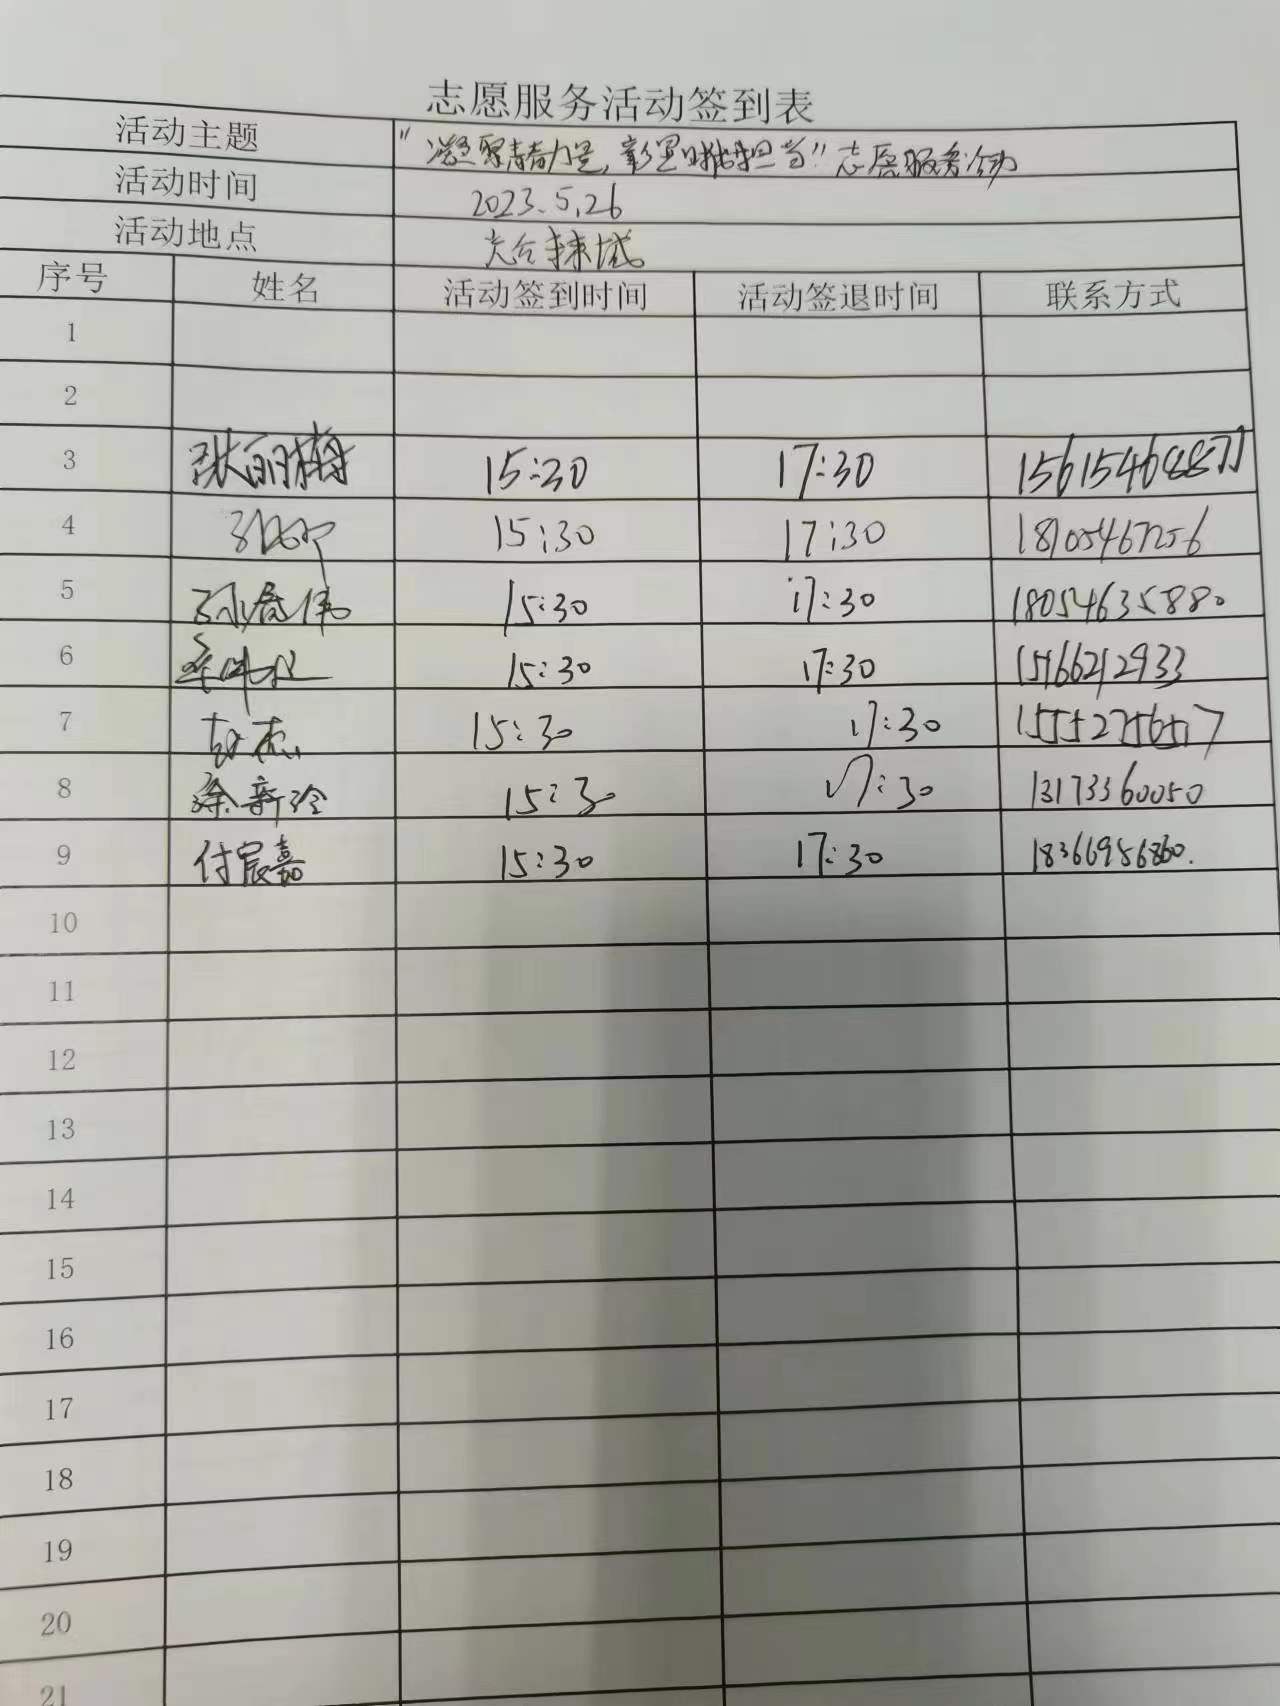 志愿服务活动签到表
活动主题 "凝聚青春力量,彰显时代担当"志愿服务活动
活动时间 2023.5.26
活动地点
序号 姓名 活动签到时间 活动签退时间 联系方式
1
2
3 张丽梅 15:30 17:30
4 15:30 17:30 18105467256
5 孙春伟 15:30 17:30 18054635880
6 15:30 17:30 15166212933
7 赵杰 15:30 17:30 15552756517
8 徐新玲 15:30 17:30 13173360050
9 付宸嘉 15:30 17:30 18366956860.
10
11
12
13
14
15
16
17
18
19
20
21